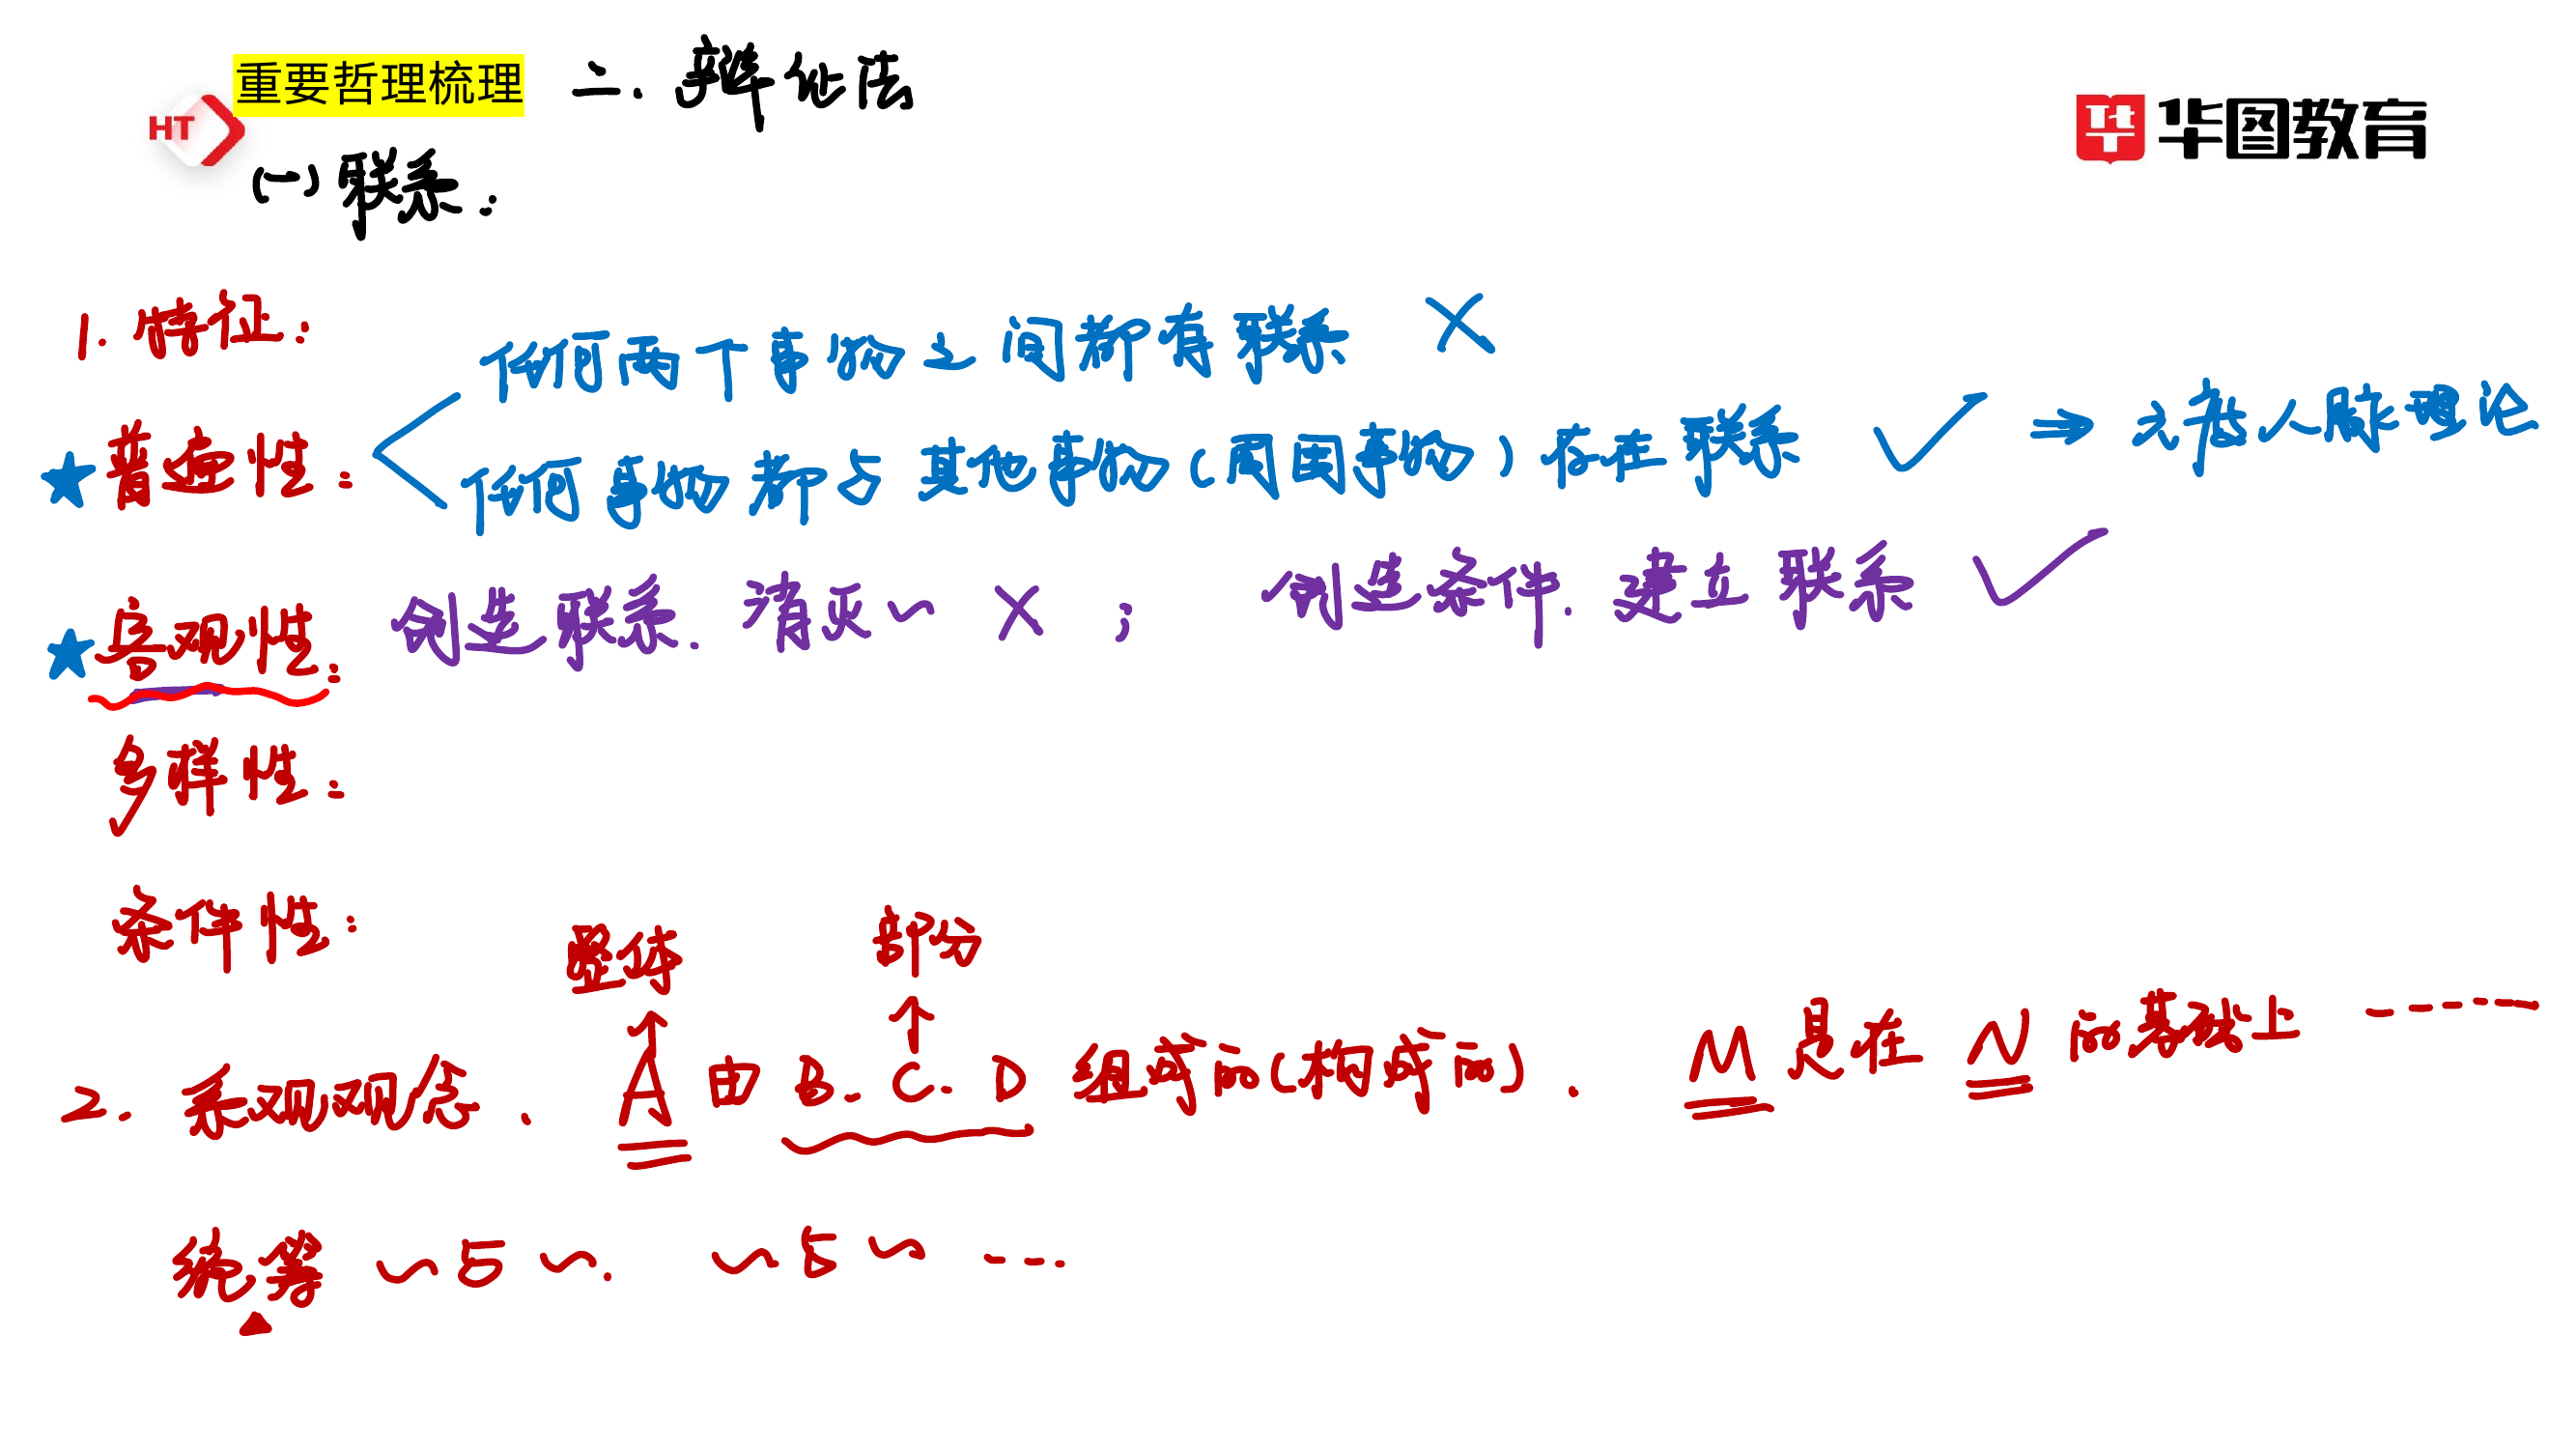 重要哲理梳理 二. 辩证法
HT
华图教育
(一) 联系:
1. 特征:
任何两个事物之间都有联系 ×
★普遍性:
任何事物都与其他事物(周围事物)存在联系 ✓ ⇒ 六度人脉理论
★客观性: 创造联系. 消灭~ × ; 创造条件. 建立联系 ✓
多样性:
条件性:
整体 部分
↑ ↑
2. 系观观念. A 由 B. C. D 组成的(构成的). M 是在 N 的基础上 ------
统筹 ~与~. ~与~ ...